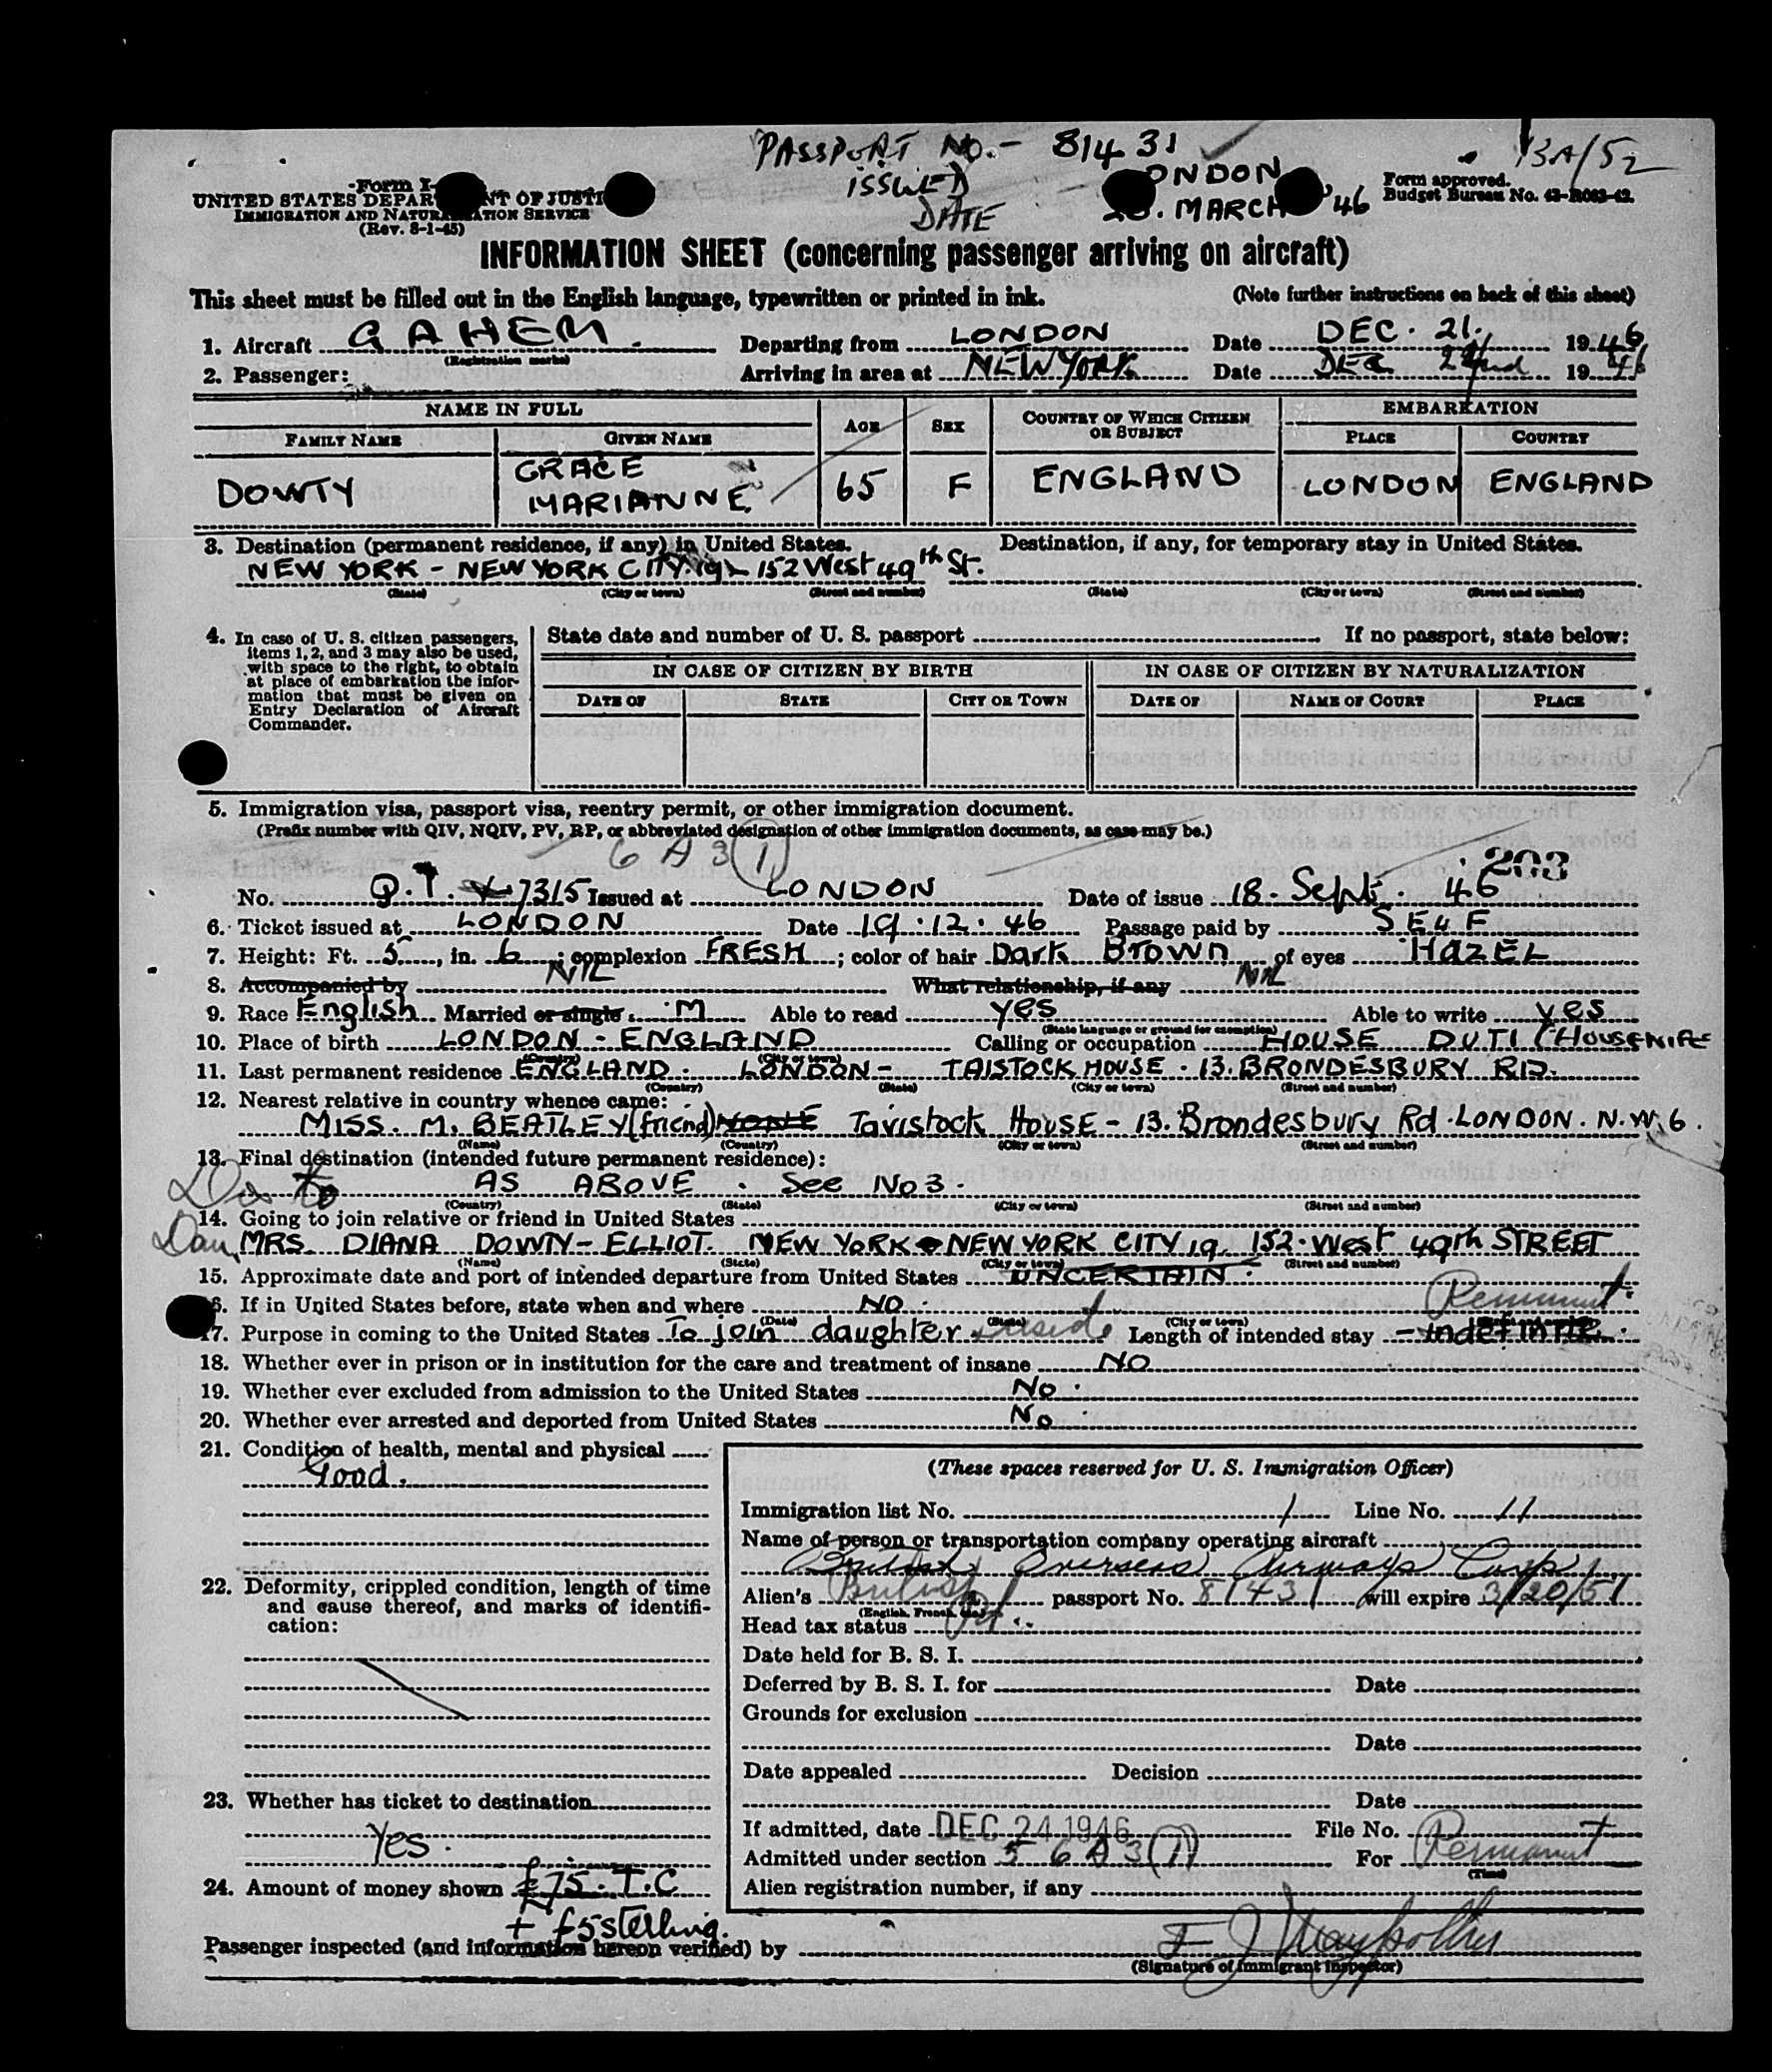 PASSPORT NO.- 81431
ISSUED
DATE
ONDON
MARCH '46
13A/52
Form I-
UNITED STATES DEPAR NT OF JUSTI
IMMIGRATION AND NATURALIZATION SERVICE
(Rev. 8-1-45)
Form approved.
Budget Bureau No. 43-R083-42.
INFORMATION SHEET (concerning passenger arriving on aircraft)
This sheet must be filled out in the English language, typewritten or printed in ink. (Note further instructions on back of this sheet)
1. Aircraft G A H E M . Departing from LONDON Date DEC. 21. 1946
(Registration marks)
2. Passenger: Arriving in area at NEW YORK Date DEC 22nd 1946
NAME IN FULL AGE SEX COUNTRY OF WHICH CITIZEN OR SUBJECT EMBARKATION
FAMILY NAME GIVEN NAME PLACE COUNTRY
DOWTY GRACE MARIANNE 65 F ENGLAND LONDON ENGLAND
3. Destination (permanent residence, if any) in United States. Destination, if any, for temporary stay in United States.
NEW YORK - NEW YORK CITY. 19 - 152 West 49th St.
(State) (City or town) (Street and number) (State) (City or town) (Street and number)
4. In case of U. S. citizen passengers, items 1, 2, and 3 may also be used, with space to the right, to obtain at place of embarkation the information that must be given on Entry Declaration of Aircraft Commander.
State date and number of U. S. passport If no passport, state below:
IN CASE OF CITIZEN BY BIRTH IN CASE OF CITIZEN BY NATURALIZATION
DATE OF STATE CITY OR TOWN DATE OF NAME OF COURT PLACE
5. Immigration visa, passport visa, reentry permit, or other immigration document.
(Prefix number with QIV, NQIV, PV, RP, or abbreviated designation of other immigration documents, as case may be.)
6 A 3 (1)
203
No. Q.I. 7315 Issued at LONDON Date of issue 18. Sept. 46
6. Ticket issued at LONDON Date 19.12.46 Passage paid by SELF
7. Height: Ft. 5, in. 6; complexion FRESH; color of hair Dark BROWN of eyes HAZEL
8. Accompanied by NIL What relationship, if any NIL
9. Race English Married or single. M Able to read yes Able to write yes
(State language or ground for exemption)
10. Place of birth LONDON - ENGLAND Calling or occupation HOUSE DUTI (HOUSEWIFE
(Country) (City or town)
11. Last permanent residence ENGLAND. LONDON - TAISTOCK HOUSE. 13. BRONDESBURY RD.
(Country) (State) (City or town) (Street and number)
12. Nearest relative in country whence came:
MISS. M. BEATLEY (friend) NONE Tavistock House - 13. Brondesbury Rd. LONDON. N.W.6.
(Name) (Country) (City or town) (Street and number)
13. Final destination (intended future permanent residence):
AS ABOVE . See No 3.
(Country) (State) (City or town) (Street and number)
14. Going to join relative or friend in United States
Dau MRS. DIANA DOWTY-ELLIOT. NEW YORK NEW YORK CITY 19 152. West 49th STREET
(Name) (State) (City or town) (Street and number)
15. Approximate date and port of intended departure from United States UNCERTAIN.
16. If in United States before, state when and where NO. Permanent
(Date) (State) (City or town) (Street and number)
17. Purpose in coming to the United States To join daughter reside Length of intended stay - indefinite.
18. Whether ever in prison or in institution for the care and treatment of insane NO
19. Whether ever excluded from admission to the United States No.
20. Whether ever arrested and deported from United States No
21. Condition of health, mental and physical
Good.
22. Deformity, crippled condition, length of time and cause thereof, and marks of identification:
23. Whether has ticket to destination
Yes.
24. Amount of money shown £75. T.C
+ £5 sterling.
(These spaces reserved for U. S. Immigration Officer)
Immigration list No. 1 Line No. 11
Name of person or transportation company operating aircraft
British Overseas Airways Corp
Alien's British passport No. 81431 will expire 3/20/51
(English, French, etc.)
Head tax status Pd
Date held for B. S. I.
Deferred by B. S. I. for Date
Grounds for exclusion
Date
Date appealed Decision
Date
If admitted, date DEC 24 1946 File No.
Admitted under section 5 6 A 3 (1) For Permanent
(Time)
Alien registration number, if any
Passenger inspected (and information hereon verified) by
(Signature of immigrant inspector)